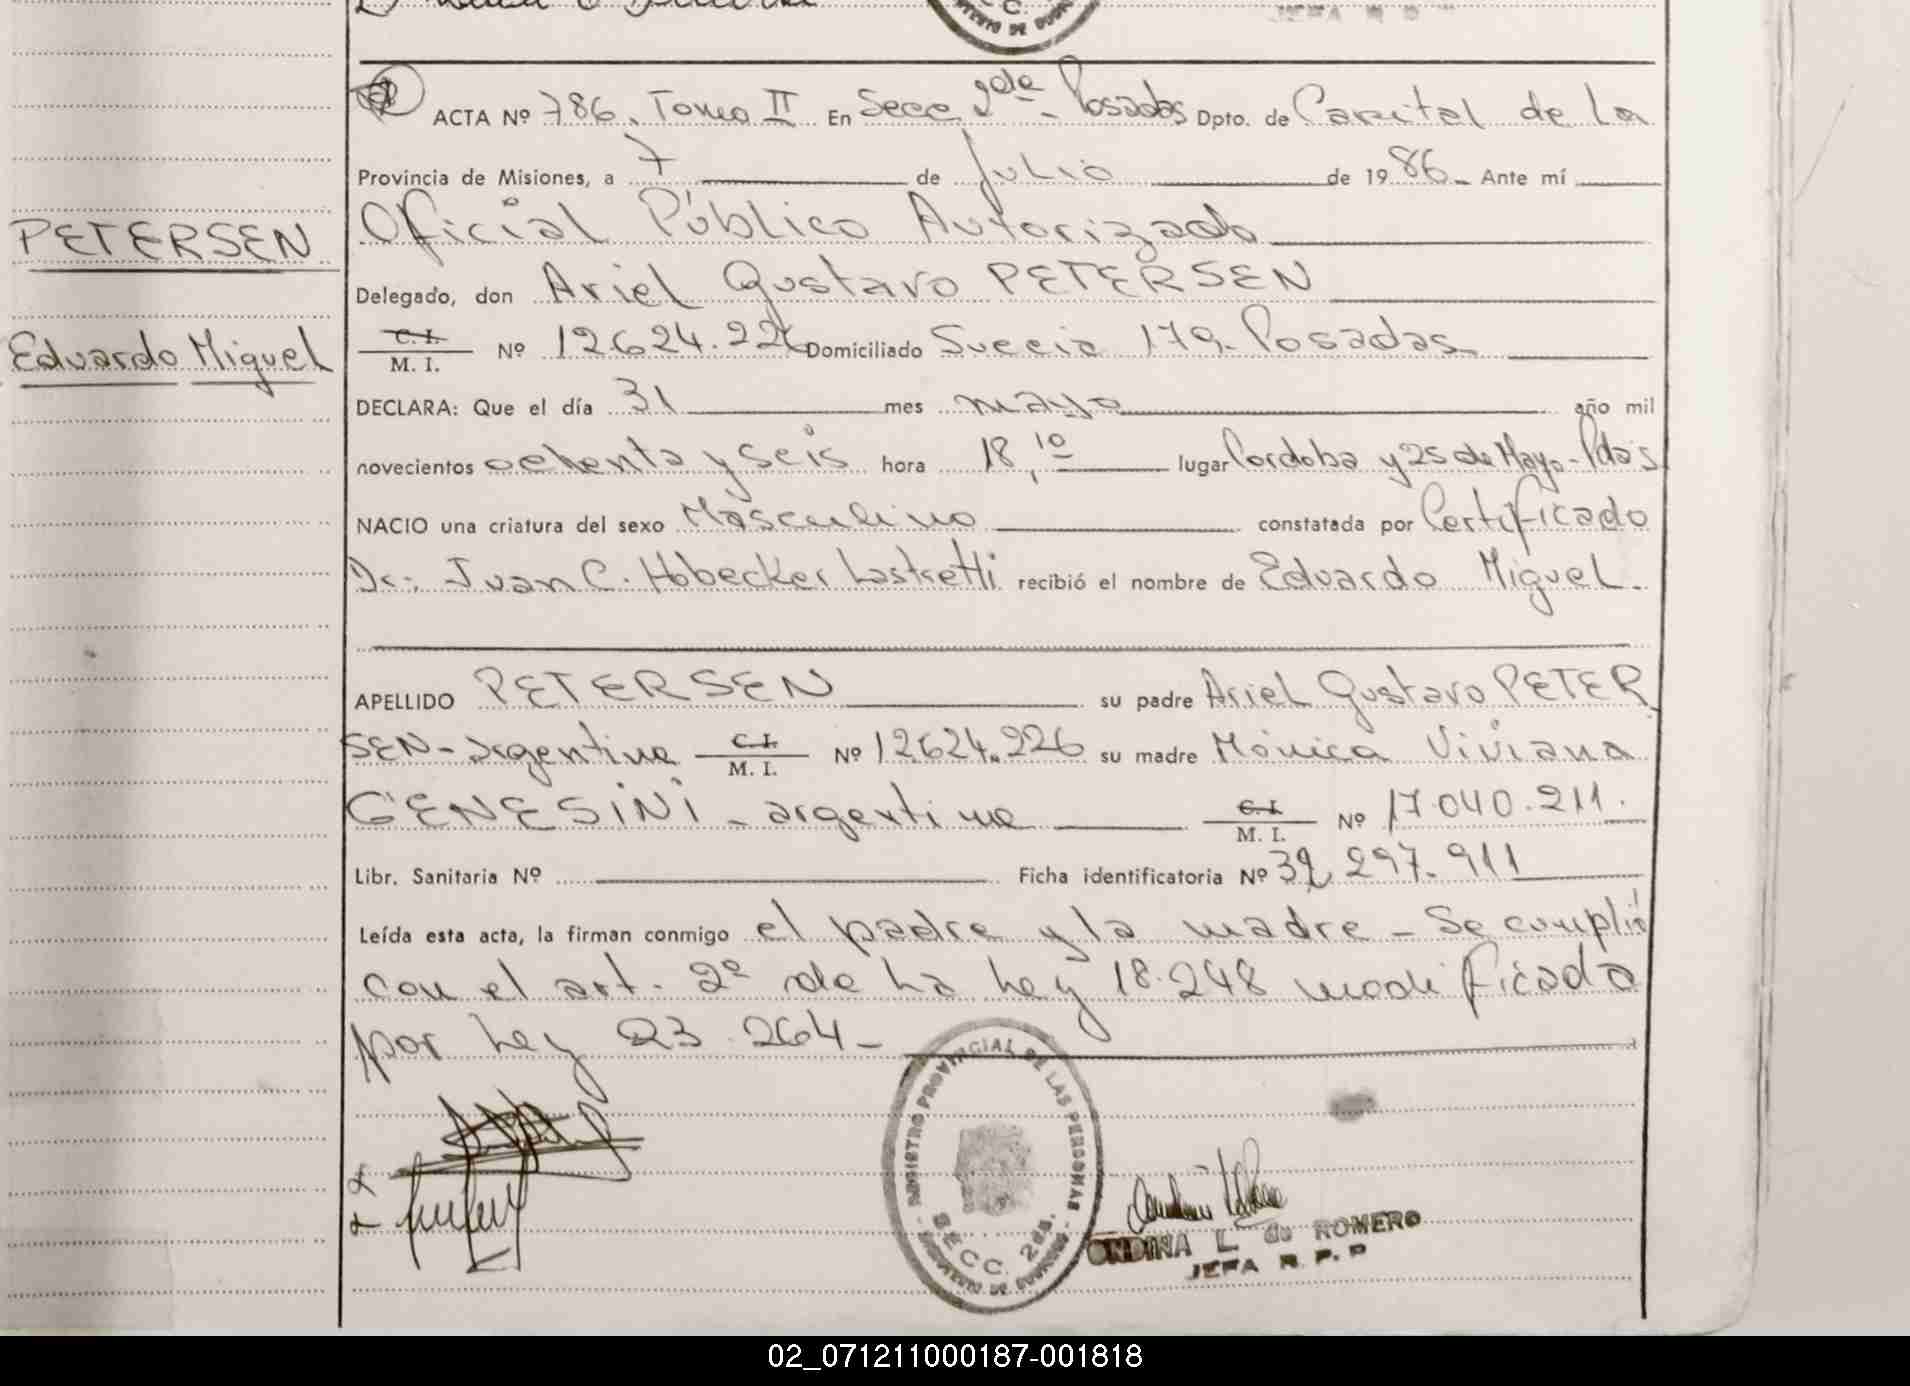 ACTA Nº 786. Tomo II En Secc 2da - Posadas Dpto. de Capital de la
Provincia de Misiones, a 7 de Julio de 1986 Ante mí
Oficial Público Autorizado
PETERSEN
Delegado, don Ariel Gustavo PETERSEN
C.I. / M. I. Nº 12624.226 Domiciliado Suecia 179. Posadas
Eduardo Miguel
DECLARA: Que el día 31 mes mayo año mil
novecientos ochenta y seis hora 18,10 lugar Cordoba y 25 de Mayo - Pdas
NACIO una criatura del sexo Masculino constatada por Certificado
Dr.: Juan C. Hobecker Lastretti recibió el nombre de Eduardo Miguel.
APELLIDO PETERSEN su padre Ariel Gustavo PETER
SEN - argentino C.I. / M. I. Nº 12624.226 su madre Mónica Viviana
GENESINI - argentina C.I. / M. I. Nº 17.040.211.
Libr. Sanitaria Nº Ficha identificatoria Nº 32.297.911
Leída esta acta, la firman conmigo el padre y la madre - Se cumplió
con el art. 2º de la Ley 18.248 modificada
por Ley 23.264 -
REGISTRO PROVINCIAL DE LAS PERSONAS
SECC. 2da.
ONDINA L. de ROMERO
JEFA R. P. P
02_071211000187-001818